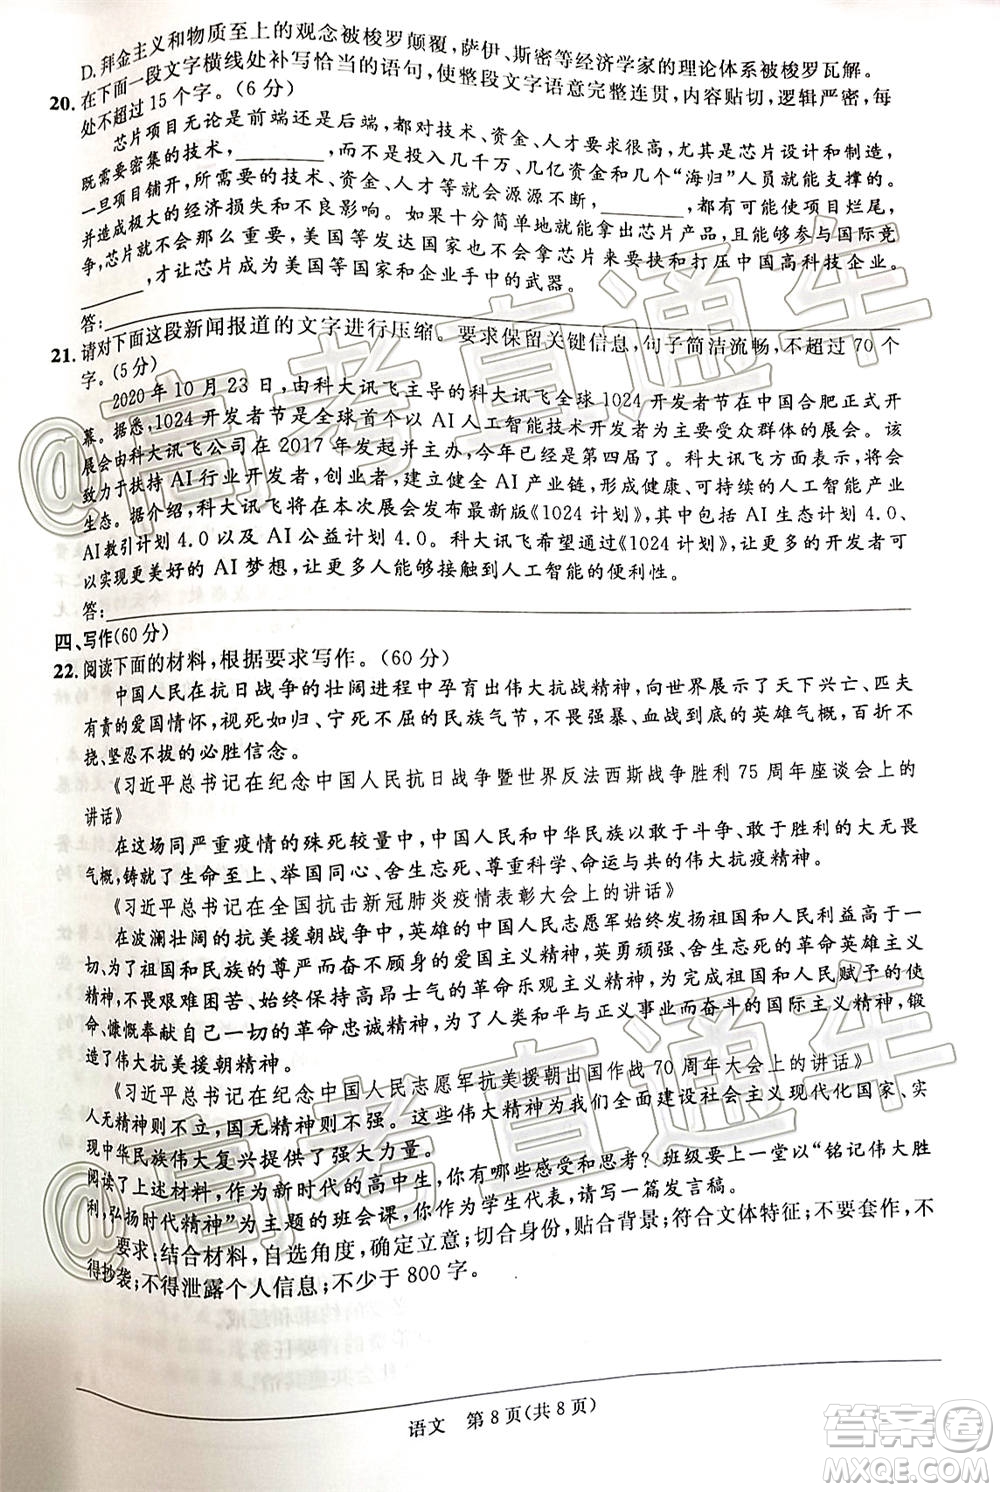 D.拜金主义和物质至上的观念被梭罗颠覆,萨伊、斯密等经济学家的理论体系被梭罗瓦解。
20.在下面一段文字横线处补写恰当的语句,使整段文字语意完整连贯,内容贴切,逻辑严密,每
处不超过15个字。(6分)
芯片项目无论是前端还是后端,都对技术、资金、人才要求很高,尤其是芯片设计和制造,
既需要密集的技术,________,可不是投入几千万、几亿资金和几个“海归”人员就能支撑的。
一旦项目铺开,所需要的技术、资金、人才等就会源源不断,________,都有可能使项目烂尾,
并造成极大的经济损失和不良影响。如果十分简单地就能拿出芯片产品,且能够参与国际竞
争,芯片就不会那么重要,美国等发达国家也就没有必要挟和打压中国高科技企业。
________,才让芯片成为美国等国家和企业手中的武器。
答:
21.请对下面这段新闻报道的文字进行压缩。要求保留关键信息,句子简洁流畅,不超过70个
字。(5分)
2020年10月23日,由科大讯飞主导的科大讯飞全球1024开发者节在中国合肥正式开
幕。据悉,1024开发者节是全球首个以AI人工智能技术开发者为主要受众群体的展会。该
展会由科大讯飞公司在2017年发起并主办,今年是第四届了。科大讯飞方面表示,将会
致力于扶持AI行业开发者,创业者,构建健全AI产业链,形成健康、可持续的人工智能产业
生态。据介绍,科大讯飞将在本次展会发布最新版《1024计划》,其中包括AI生态计划4.0、
AI教引计划4.0以及AI公益计划4.0。科大讯飞希望通过《1024计划》,让更多的开发者可
以实现更美好的AI梦想,让更多人能够接触到人工智能的便利性。
答:
四、写作(60分)
22.阅读下面的材料,根据要求写作。(60分)
中国人民在抗日战争的壮阔进程中孕育出伟大抗战精神,向世界展示了天下兴亡、匹夫
有责的爱国情怀,视死如归、宁死不屈的民族气节,不畏强暴、血战到底的英雄气概,百折不
挠、坚忍不拔的必胜信念。
《习近平总书记在纪念中国人民抗日战争暨世界反法西斯战争胜利75周年座谈会上的
讲话》
在这场同严重疫情的殊死较量中,中国人民和中华民族以敢于斗争、敢于胜利的大无畏
气概,铸就了生命至上、举国同心、舍生忘死、尊重科学、命运与共的伟大抗疫精神。
《习近平总书记在全国抗击新冠肺炎疫情表彰大会上的讲话》
在波澜壮阔的抗美援朝战争中,英雄的中国人民志愿军始终发扬祖国和人民利益高于一
切、为了祖国和民族的尊严而奋不顾身的爱国主义精神,英勇顽强、舍生忘死的革命英雄主义
精神,不畏艰难困苦、始终保持高昂士气的革命乐观主义精神,为完成祖国和人民赋予的使
命、慷慨奉献自己一切的革命忠诚精神,为了人类和平与正义事业而奋斗的国际主义精神,锻
造了伟大抗美援朝精神。
《习近平总书记在纪念中国人民志愿军抗美援朝出国作战70周年大会上的讲话》
人无精神则不立,国无精神则不强。这些伟大精神为我们全面建设社会主义现代化国家、实
现中华民族伟大复兴提供了强大力量。
阅读了上述材料,作为新时代的高中生,你有哪些感受和思考?班级要上一堂以“铭记伟大胜
利,弘扬时代精神”为主题的班会课,你作为学生代表,请写一篇发言稿。
要求:结合材料,自选角度,确定立意;切合身份,贴合背景;符合文体特征;不要套作,不
得抄袭;不得泄露个人信息;不少于800字。
语文 第8页(共8页)
@高考直通车
@高考直通车
答案圈
MXQE.COM